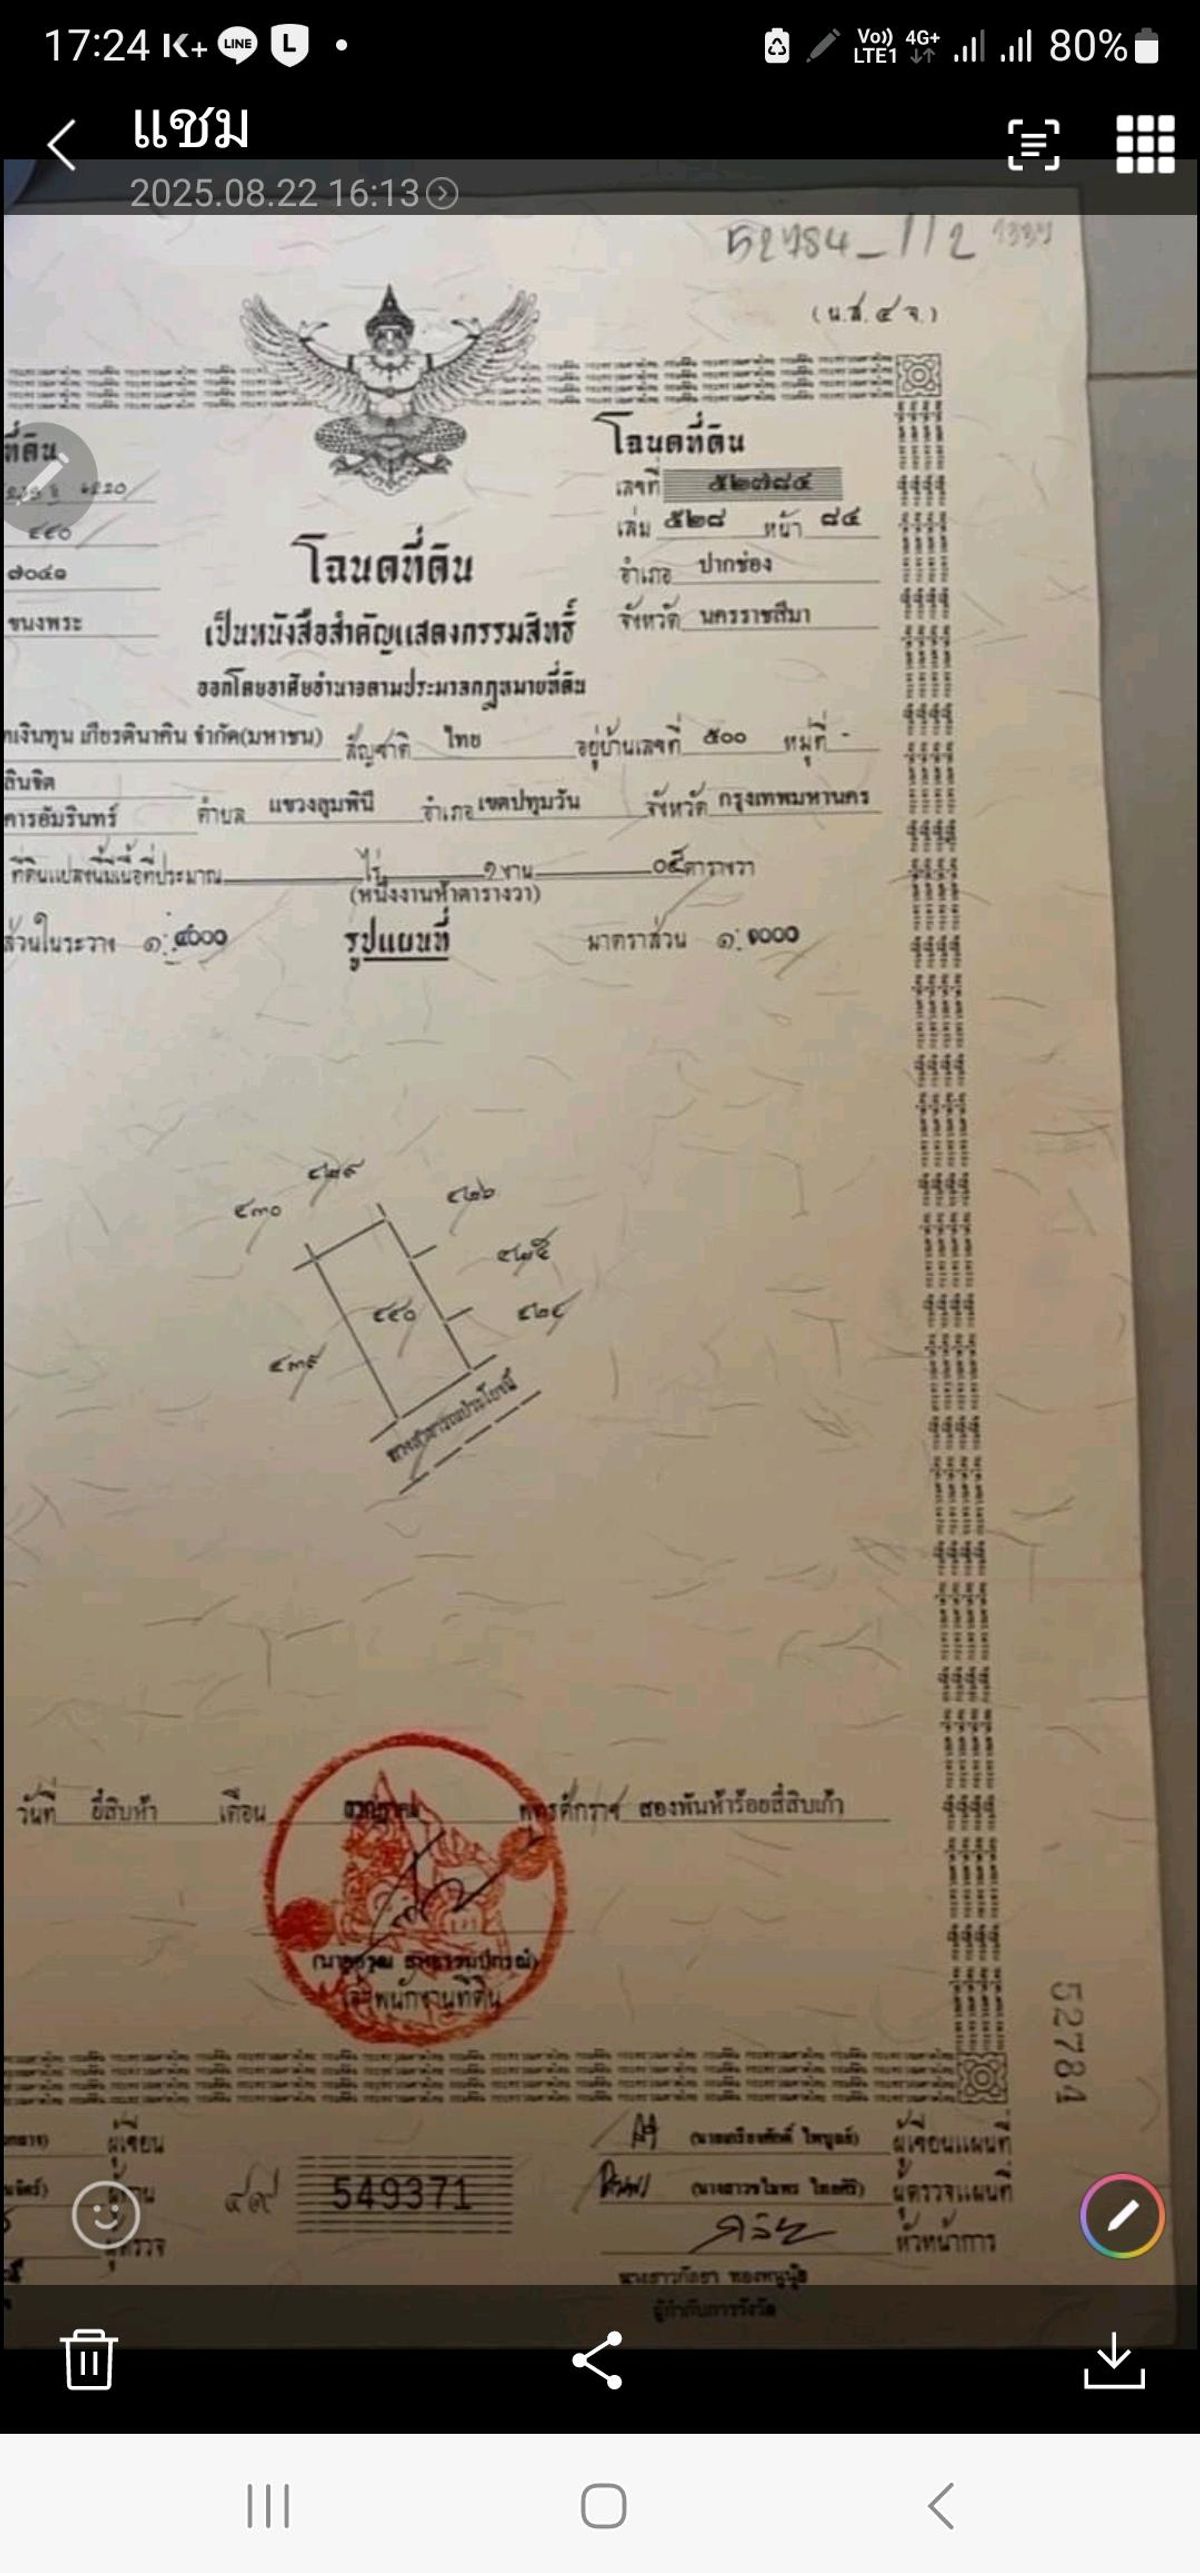 17:24 K+ LINE L Vo)) LTE1 4G+ 80%
แชม
2025.08.22 16:13
52784 - 112
(น.ส. ๔ จ.)
ที่ดิน
โฉนดที่ดิน
เลขที่ ๕๒๗๘๔
๔๔๐
เล่ม ๕๒๘ หน้า ๘๔
๗๐๔๑
โฉนดที่ดิน
อำเภอ ปากช่อง
ขนงพระ
เป็นหนังสือสำคัญแสดงกรรมสิทธิ์
จังหวัด นครราชสีมา
ออกโดยอาศัยอำนาจตามประมวลกฎหมายที่ดิน
เงินทุน เกียรตินาคิน จำกัด(มหาชน) สัญชาติ ไทย อยู่บ้านเลขที่ ๕๐๐ หมู่ที่ -
ลินจิต
คารอัมรินทร์ ตำบล แขวงลุมพินี อำเภอ เขตปทุมวัน จังหวัด กรุงเทพมหานคร
ที่ดินแปลงนี้มีเนื้อที่ประมาณ ไร่ ๑ งาน ๐๕ ตารางวา
(หนึ่งงานห้าตารางวา)
ส่วนในระวาง ๑:๔๐๐๐ รูปแผนที่ มาตราส่วน ๑:๑๐๐๐
๔๒๙
๔๓๐ ๔๒๖
๔๒๕
๔๔๐ ๔๒๔
๔๓๙
ทางสาธารณประโยชน์
วันที่ ยี่สิบห้า เดือน พุทธศักราช สองพันห้าร้อยสี่สิบเก้า
เจ้าพนักงานที่ดิน
52784
ผู้เขียน
ผู้เขียนแผนที่
549371
ผู้ตรวจแผนที่
ผู้ตรวจ
หัวหน้าการ
ผู้กำกับการรังวัด